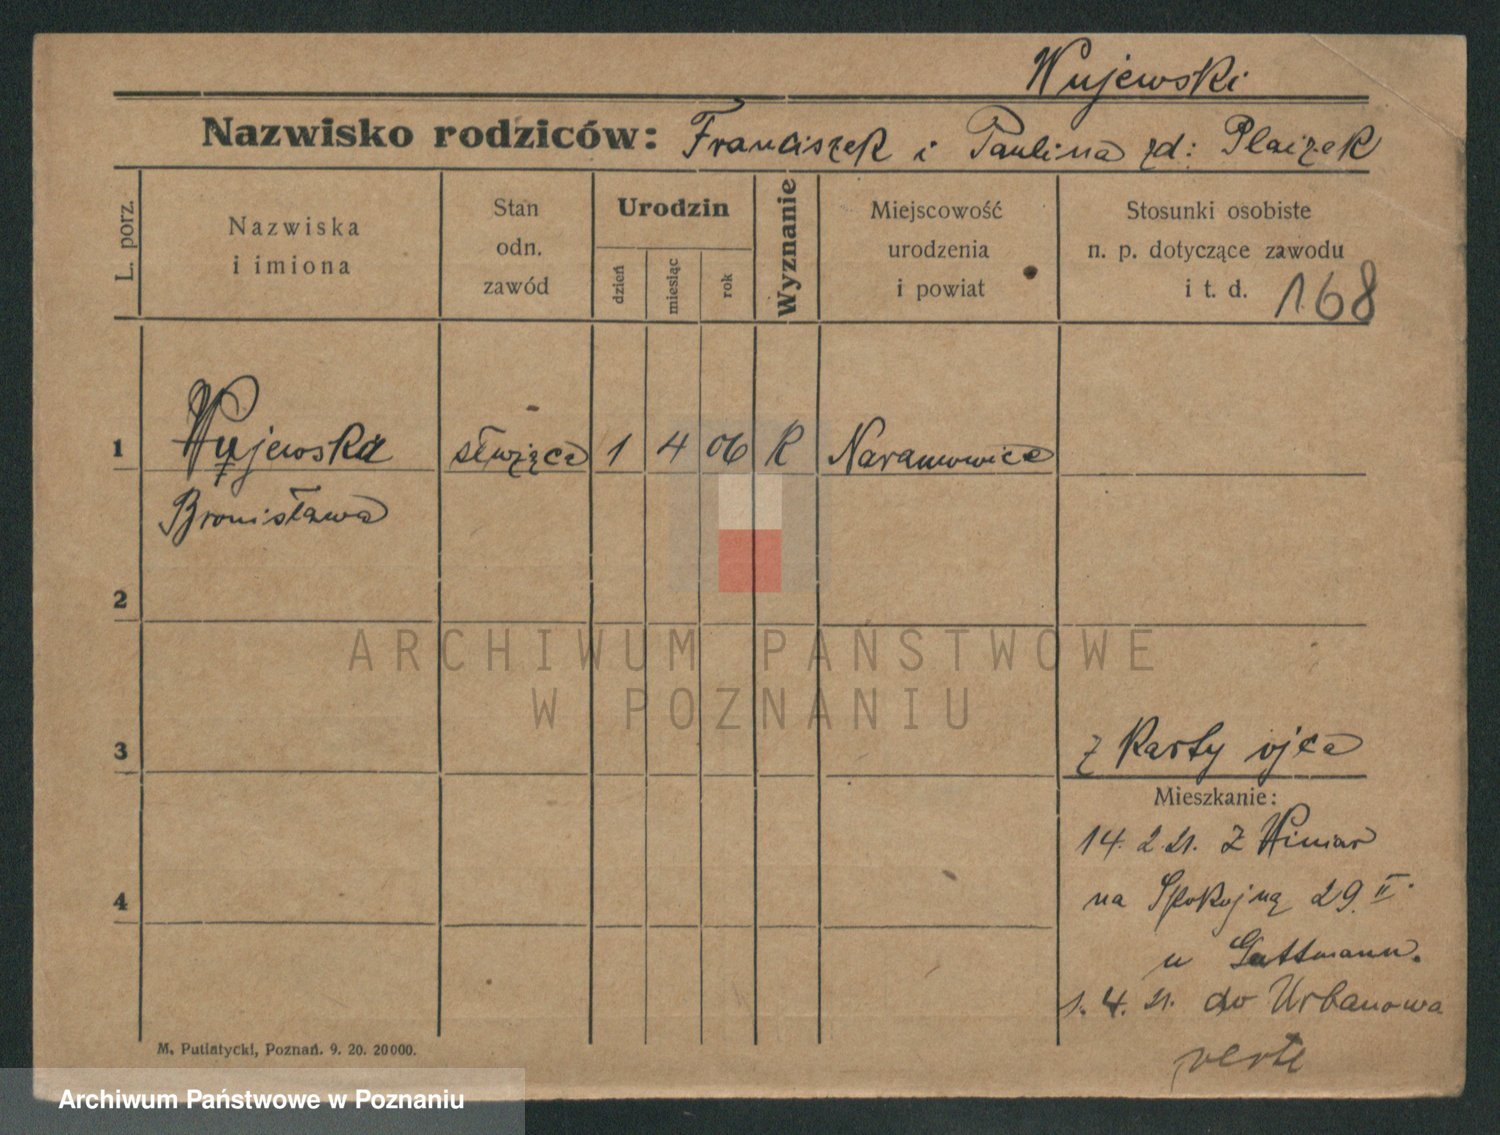 Wujewski
Nazwisko rodziców: Franciszek i Paulina zd: Plaizek
L. porz.
Nazwiska
i imiona
Stan
odn.
zawód
Urodzin
dzień
miesiąc
rok
Wyznanie
Miejscowość
urodzenia
i powiat
Stosunki osobiste
n. p. dotyczące zawodu
i t. d. 168
1 Wujewska służąca 1 4 06 R Naramowice
Bronisława
2
3
z Karty ojca
Mieszkanie:
14. 2. 21. z Winiar
na Spokojną 29. II.
4
u Guttmann.
1. 4. 21. do Urbanowa
verte
M. Putiatycki, Poznań. 9. 20. 20000.
ARCHIWUM PAŃSTWOWE
W POZNANIU
Archiwum Państwowe w Poznaniu